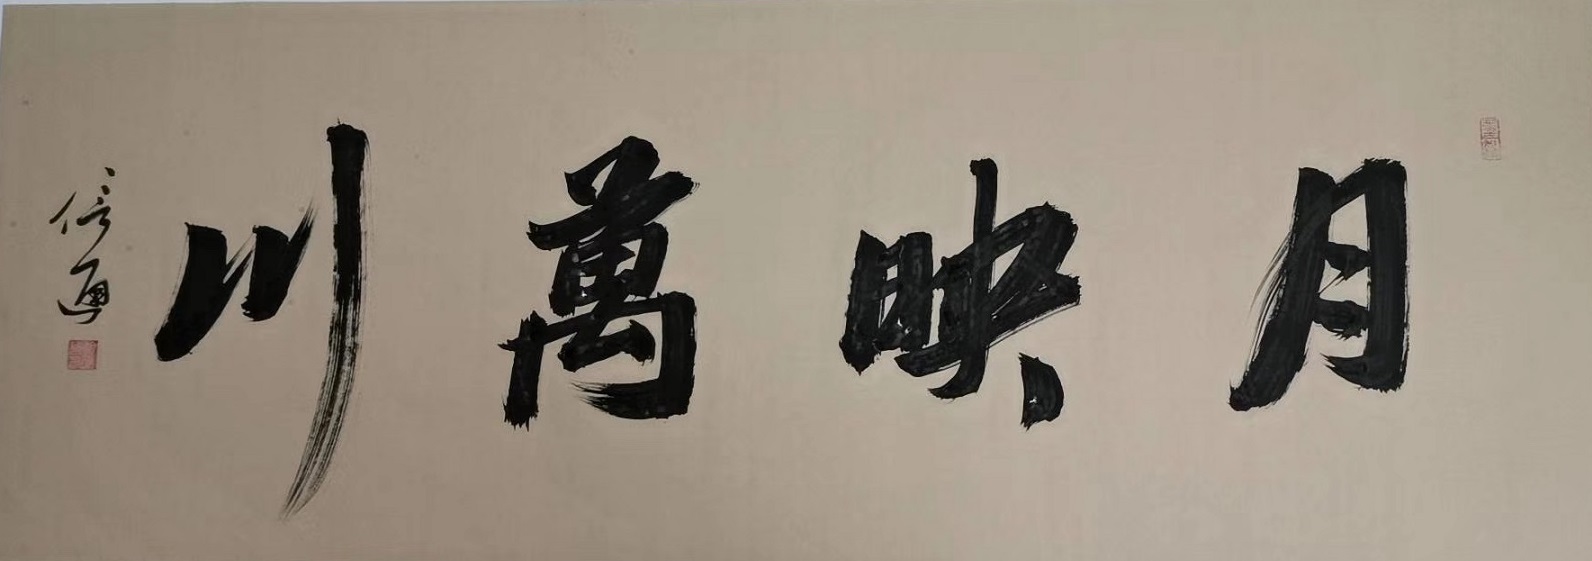 月映萬川
信通